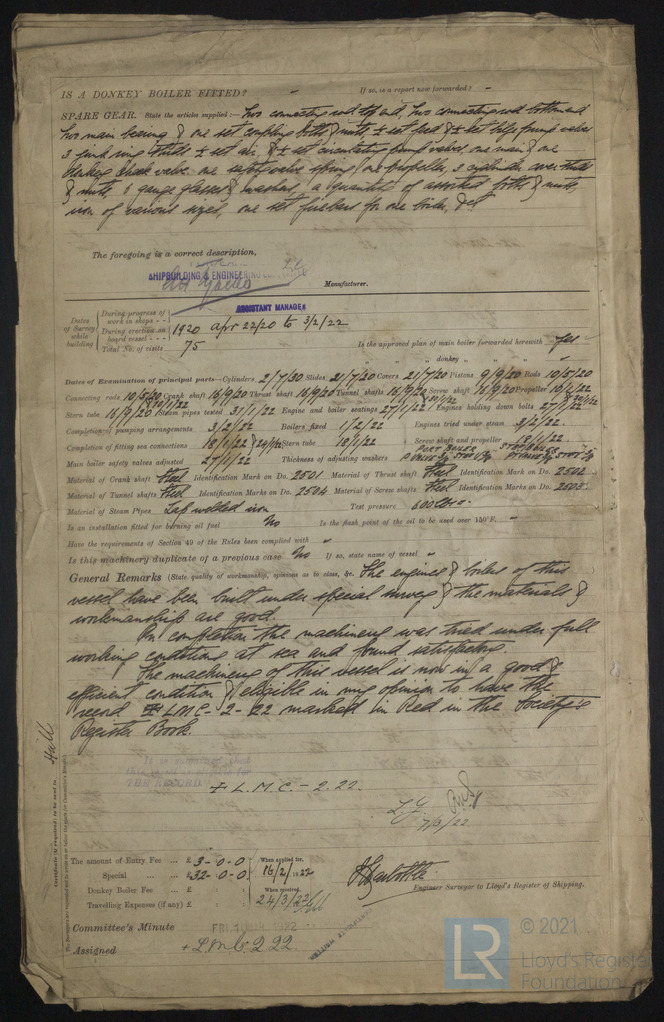 IS A DONKEY BOILER FITTED? " If so, is a report now forwarded? "
SPARE GEAR. State the articles supplied:— Two connecting rod top end, Two connecting rod bottom end
two main bearing & one set coupling bolts & nuts, ½ set feed & ½ set bilge pump valves
3 junk ring studs ½ set air & ½ set circulating pump valves, one main & one
donkey check valve one safety valve spring, one propeller, 3 cylinder cover studs
& nuts, 6 gauge glasses & washers, a quantity of assorted bolts & nuts,
iron of various sizes, one set firebars for one boiler, &ct
The foregoing is a correct description,
SHIPBUILDING & ENGINEERING
Manufacturer.
ASSISTANT MANAGER
Dates of Survey while building
During progress of work in shops - -
During erection on board vessel - - -
Total No. of visits
1920 Apr 22/20 to 3/2/22
75
Is the approved plan of main boiler forwarded herewith Yes
" " " donkey " " "
Dates of Examination of principal parts—Cylinders 2/7/20 Slides 21/7/20 Covers 21/7/20 Pistons 9/9/20 Rods 10/5/20
Connecting rods 10/5/20 Crank shaft 16/9/20 Thrust shaft 16/9/20 Tunnel shafts 16/9/20 Screw shaft 16/9/20 Propeller 10/1/22
Stern tube 16/9/20 Steam pipes tested 31/1/22 Engine and boiler seatings 27/1/22 Engines holding down bolts 27/1/22
Completion of pumping arrangements 3/2/22 Boilers fixed 1/2/22 Engines tried under steam 3/2/22
Completion of fitting sea connections 18/1/22 Stern tube 18/1/22 Screw shaft and propeller 18/1/22
Main boiler safety valves adjusted 27/1/22 Thickness of adjusting washers PORT BOILER
Material of Crank shaft Steel Identification Mark on Do. 2501 Material of Thrust shaft Steel Identification Mark on Do. 2502
Material of Tunnel shafts Steel Identification Marks on Do. 2504 Material of Screw shafts Steel Identification Marks on Do. 2503
Material of Steam Pipes Lap welded iron Test pressure 600 lbs
Is an installation fitted for burning oil fuel No Is the flash point of the oil to be used over 150°F. "
Have the requirements of Section 49 of the Rules been complied with "
Is this machinery duplicate of a previous case No If so, state name of vessel "
General Remarks (State quality of workmanship, opinions as to class, &c. The engines & boilers of this
vessel have been built under special survey & the materials &
workmanship are good.
On completion the machinery was tried under full
working conditions at sea and found satisfactory.
The machinery of this vessel is now in a good &
efficient condition & eligible in my opinion to have the
record + LMC - 2 - 22 marked in Red in the Society's
Register Book.
It is submitted that
this vessel is eligible for
THE RECORD. + L.M.C. - 2.22.
7/3/22
Hull
The amount of Entry Fee ... £ 3-0-0
Special ... ... £ 32-0-0
Donkey Boiler Fee ... £
Travelling Expenses (if any) £
When applied for, 16/2/1922
When received, 24/3/22
Engineer Surveyor to Lloyd's Register of Shipping.
Committee's Minute
Assigned + LMC 2 22
© 2021
LR
Lloyd's Register
Foundation